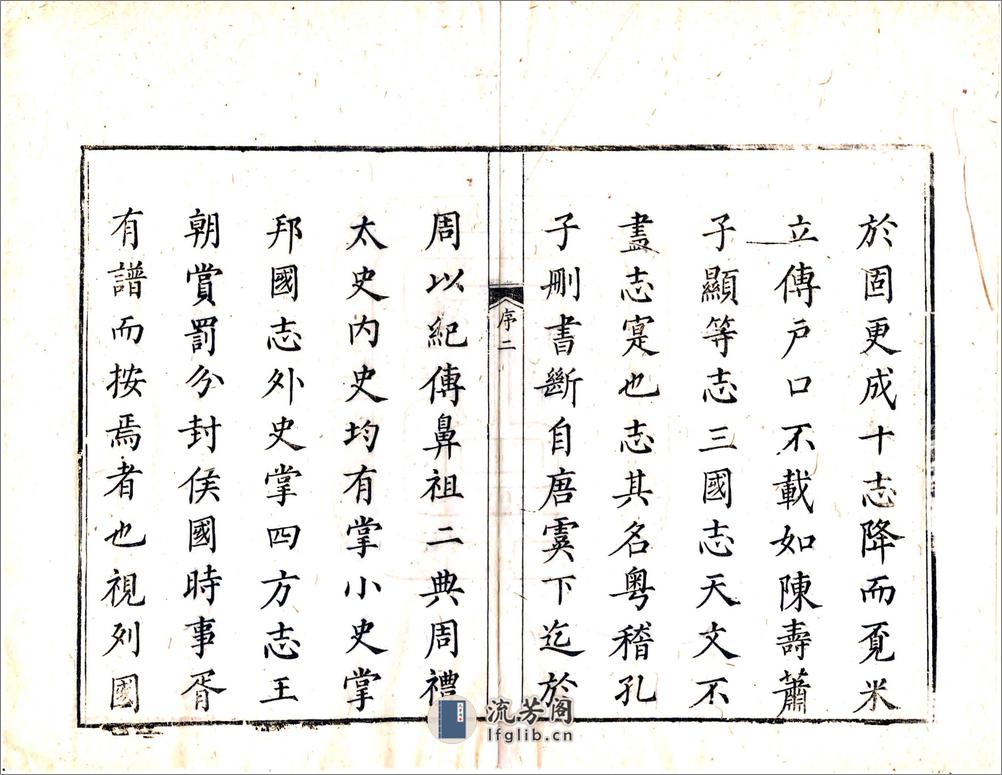 於固更成十志降而覔米
立傳戶口不載如陳壽蕭
子顯等志三國志天文不
盡志寔也志其名粤稽孔
子刪書斷自唐虞下迄於
序二
周以紀傳鼻祖二典周禮
太史內史均有掌小史掌
邦國志外史掌四方志王
朝賞罰分封侯國時事胥
有譜而按焉者也視列國
流芳阁
lfglib.cn